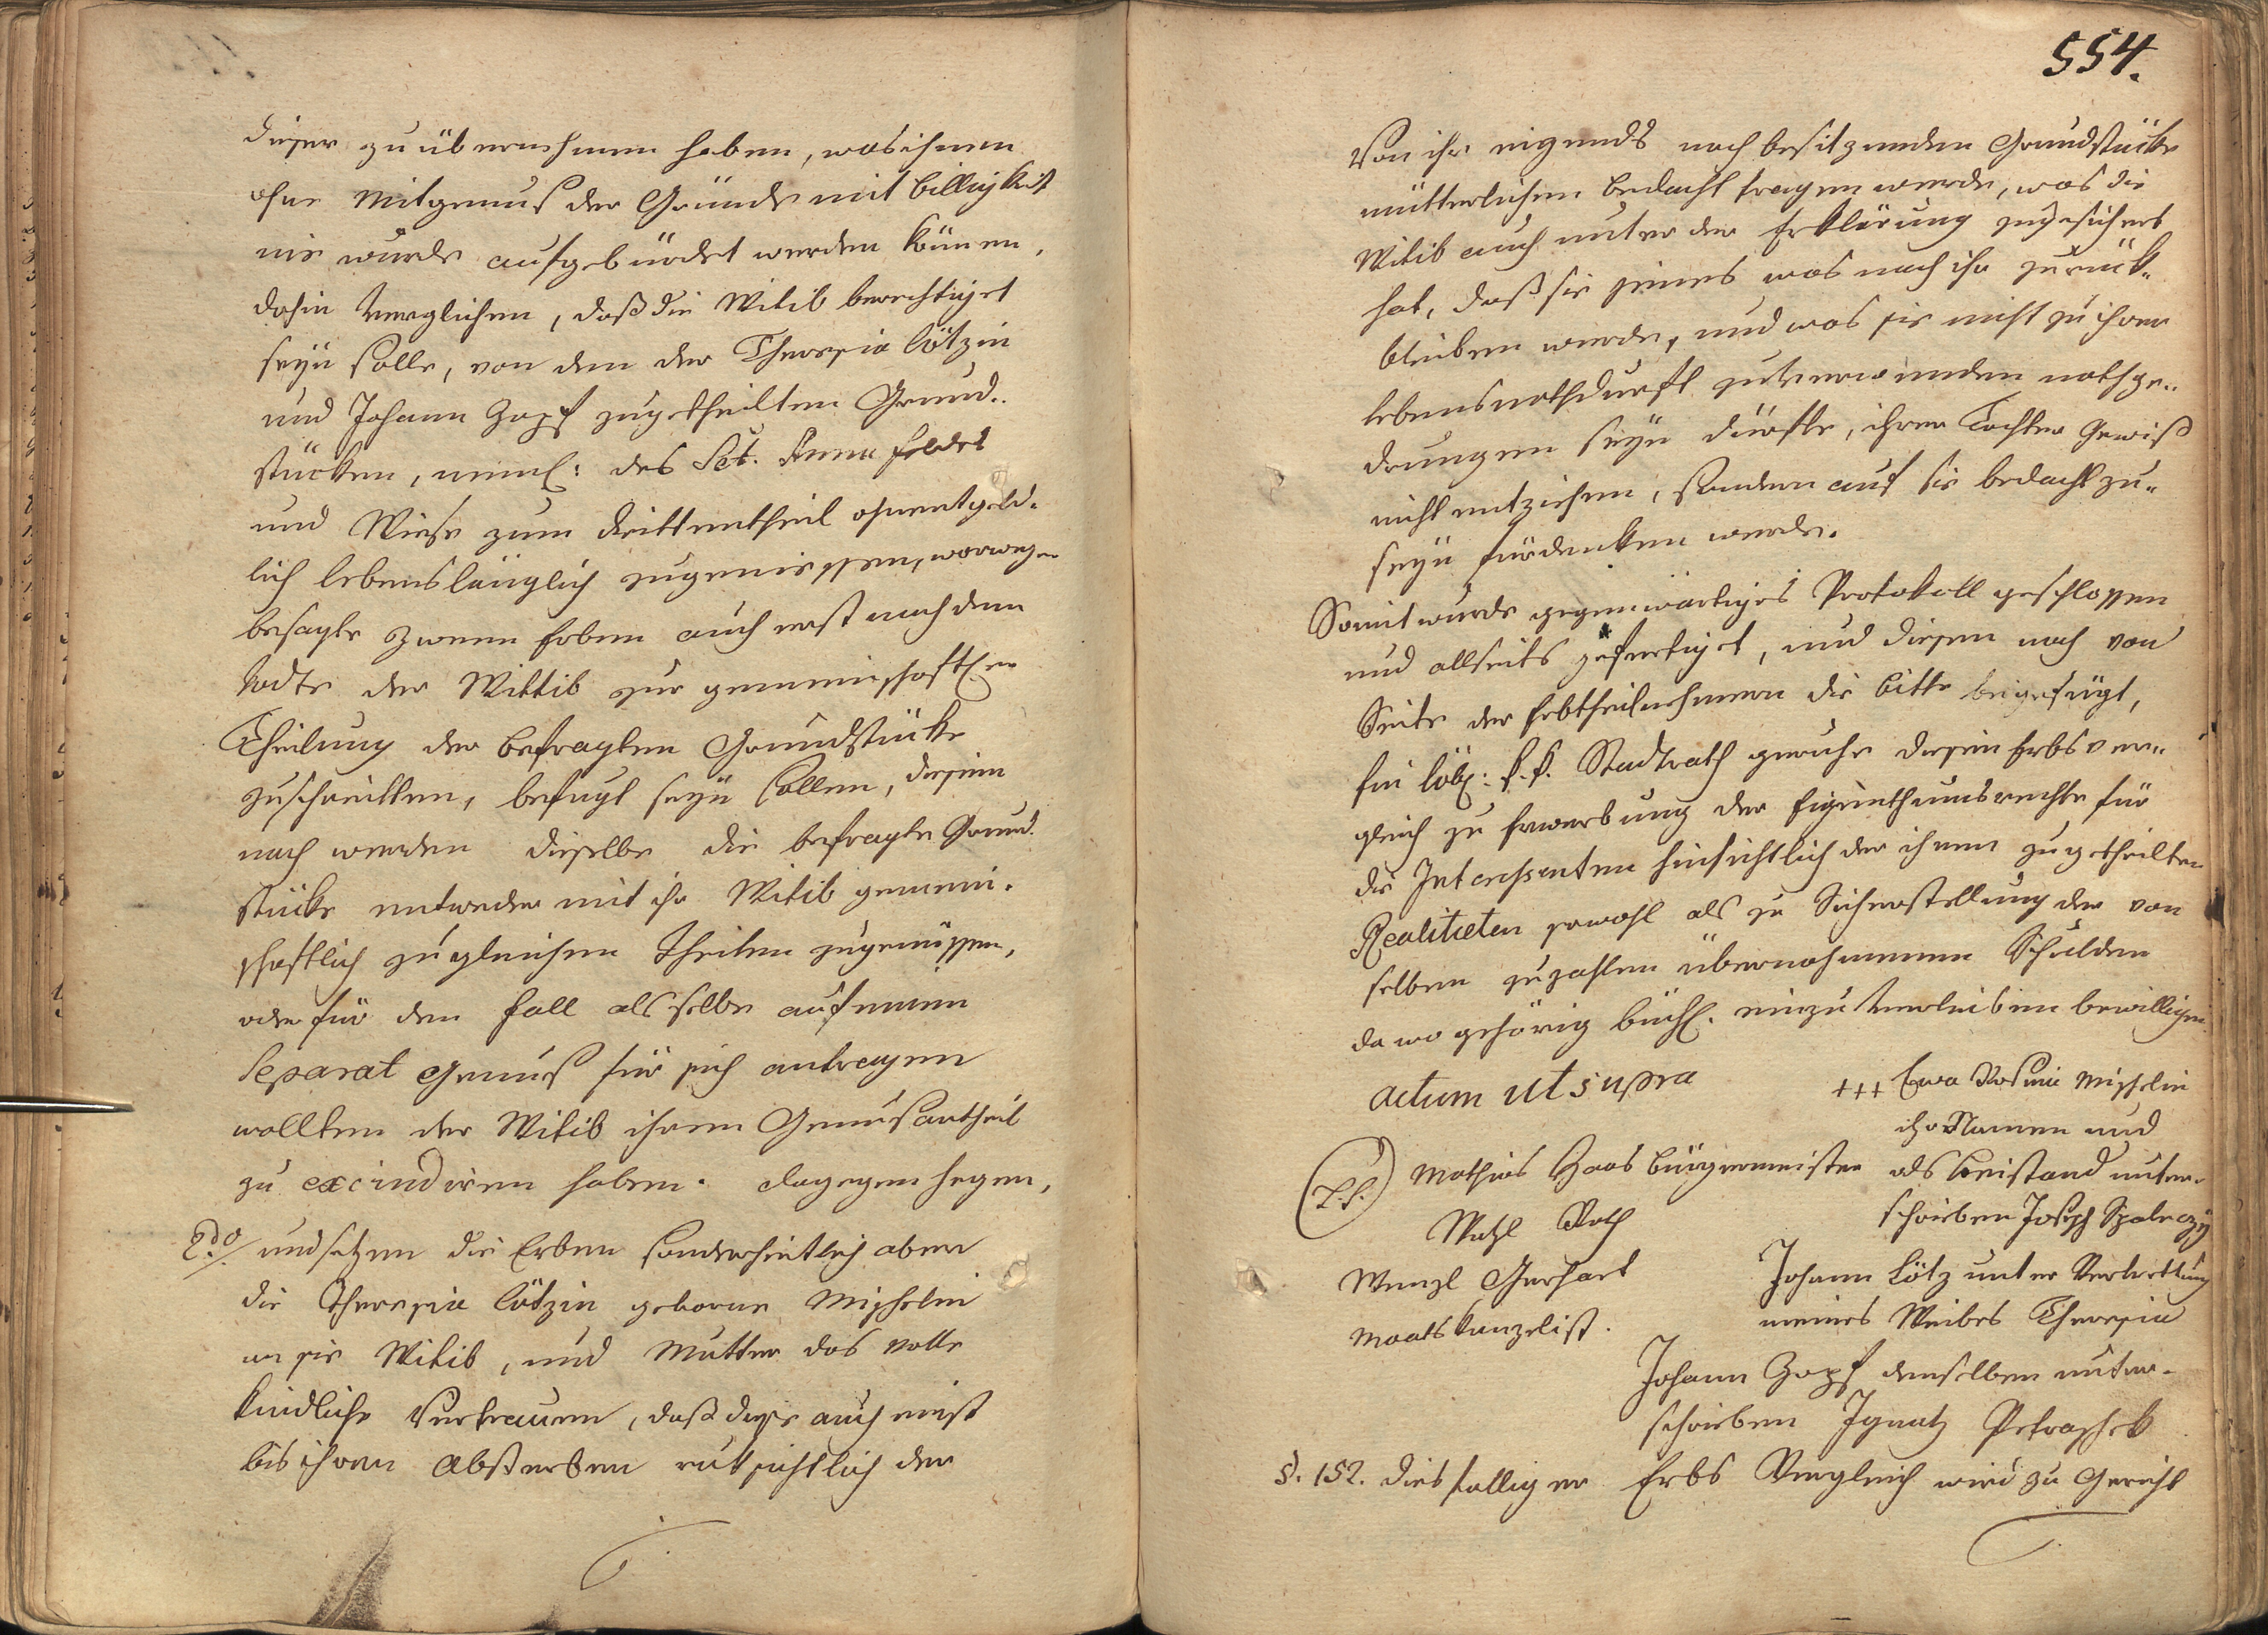 dieser zu übernehmen haben, was ihnen
ohne Mitgenuß der Gründe mit billigkeit
nie wurde aufgebürdet werden können,
dahin verglichen, daß die Witib berechtiget
seyn solle, von den der Theresia Lötzin
und Johann Zopf zugetheilten Grund-
stücken, neml: des Sct. Anna feldes
und Wiese zum drittentheil ohnentgeld-
lich lebenslänglich zugeniessen, worwegen
besagte zween Erben auch erst nach dem
todte der Wittib zur gemeinschaftl:en
Theilung der befragten Grundstücke
zuschreitten, befugt seyn sollen, diesem
nach werden dieselbe die befragte Grund-
stücke entweder mit ihr Witib gemein-
schaftlich zu gleichen Theilen zugenüssen,
oder für den fall als selbe auf einen
Separat Genuß für sich antragen
wollten der Witib ihren Genußantheil
zu excindiren haben. dagegen hegen,
2do/ und setzen die Erben sonderheitlich aber
die Theresia Lötzin geborne Mischelin
an sie Witib, und Mutter das volle
kindliche Vertrauen, daß diese auch einst
bis ihren Absterben rücksichtlich der
554.
Von ihr eigends noch besitzenden Grundstücke
mütterlichen bedacht tragen werde, was die
Witib auch unter der Erklärung zugesichert
hat, daß sie jenes was nach ihr zurück-
bleiben werde, und was sie nicht zu ihrer
lebensnothdurft zuverwenden nothge-
drungen seyn dürfte, ihrer Tochter gewiß
nicht entziehen, sondern auf sie bedacht zu-
seyn fürdenken werde.
Somit wurde gegenwärtiges Protokoll geschlossen
und allseits gefertiget, und diesem noch von
Seite der Erbtheilnehmern die bitte beigefügt,
Ein löbl: k. k. Stadtrath geruhe diesen Erbsver-
gleich zu Erwerbung der Eigenthumsrechte für
die Interessenten hinsichtlich der ihnen zugetheilten
Realitæten sowohl als zu Sicherstellung der von
selben zuzahlen übernohmenen Schulden
da wo gehörig büchl. einzuverleiben bewilligen.
actum ut supra
+++ Eva Rosina Mischelin
ihr Namen und
(L.S.) Mathias Haas bürgermeister als beistand unter-
schrieben Joseph
Rath
Wenzl Gerhart
Johann Lötz unter Vertrettung
Maats kanzelist.
meines Weibes Theresia
Johann Zopf denselben unter-
schrieben Ignatz Petraschek
§. 152. diesfälliger Erbs Vergleich wird zu Gericht